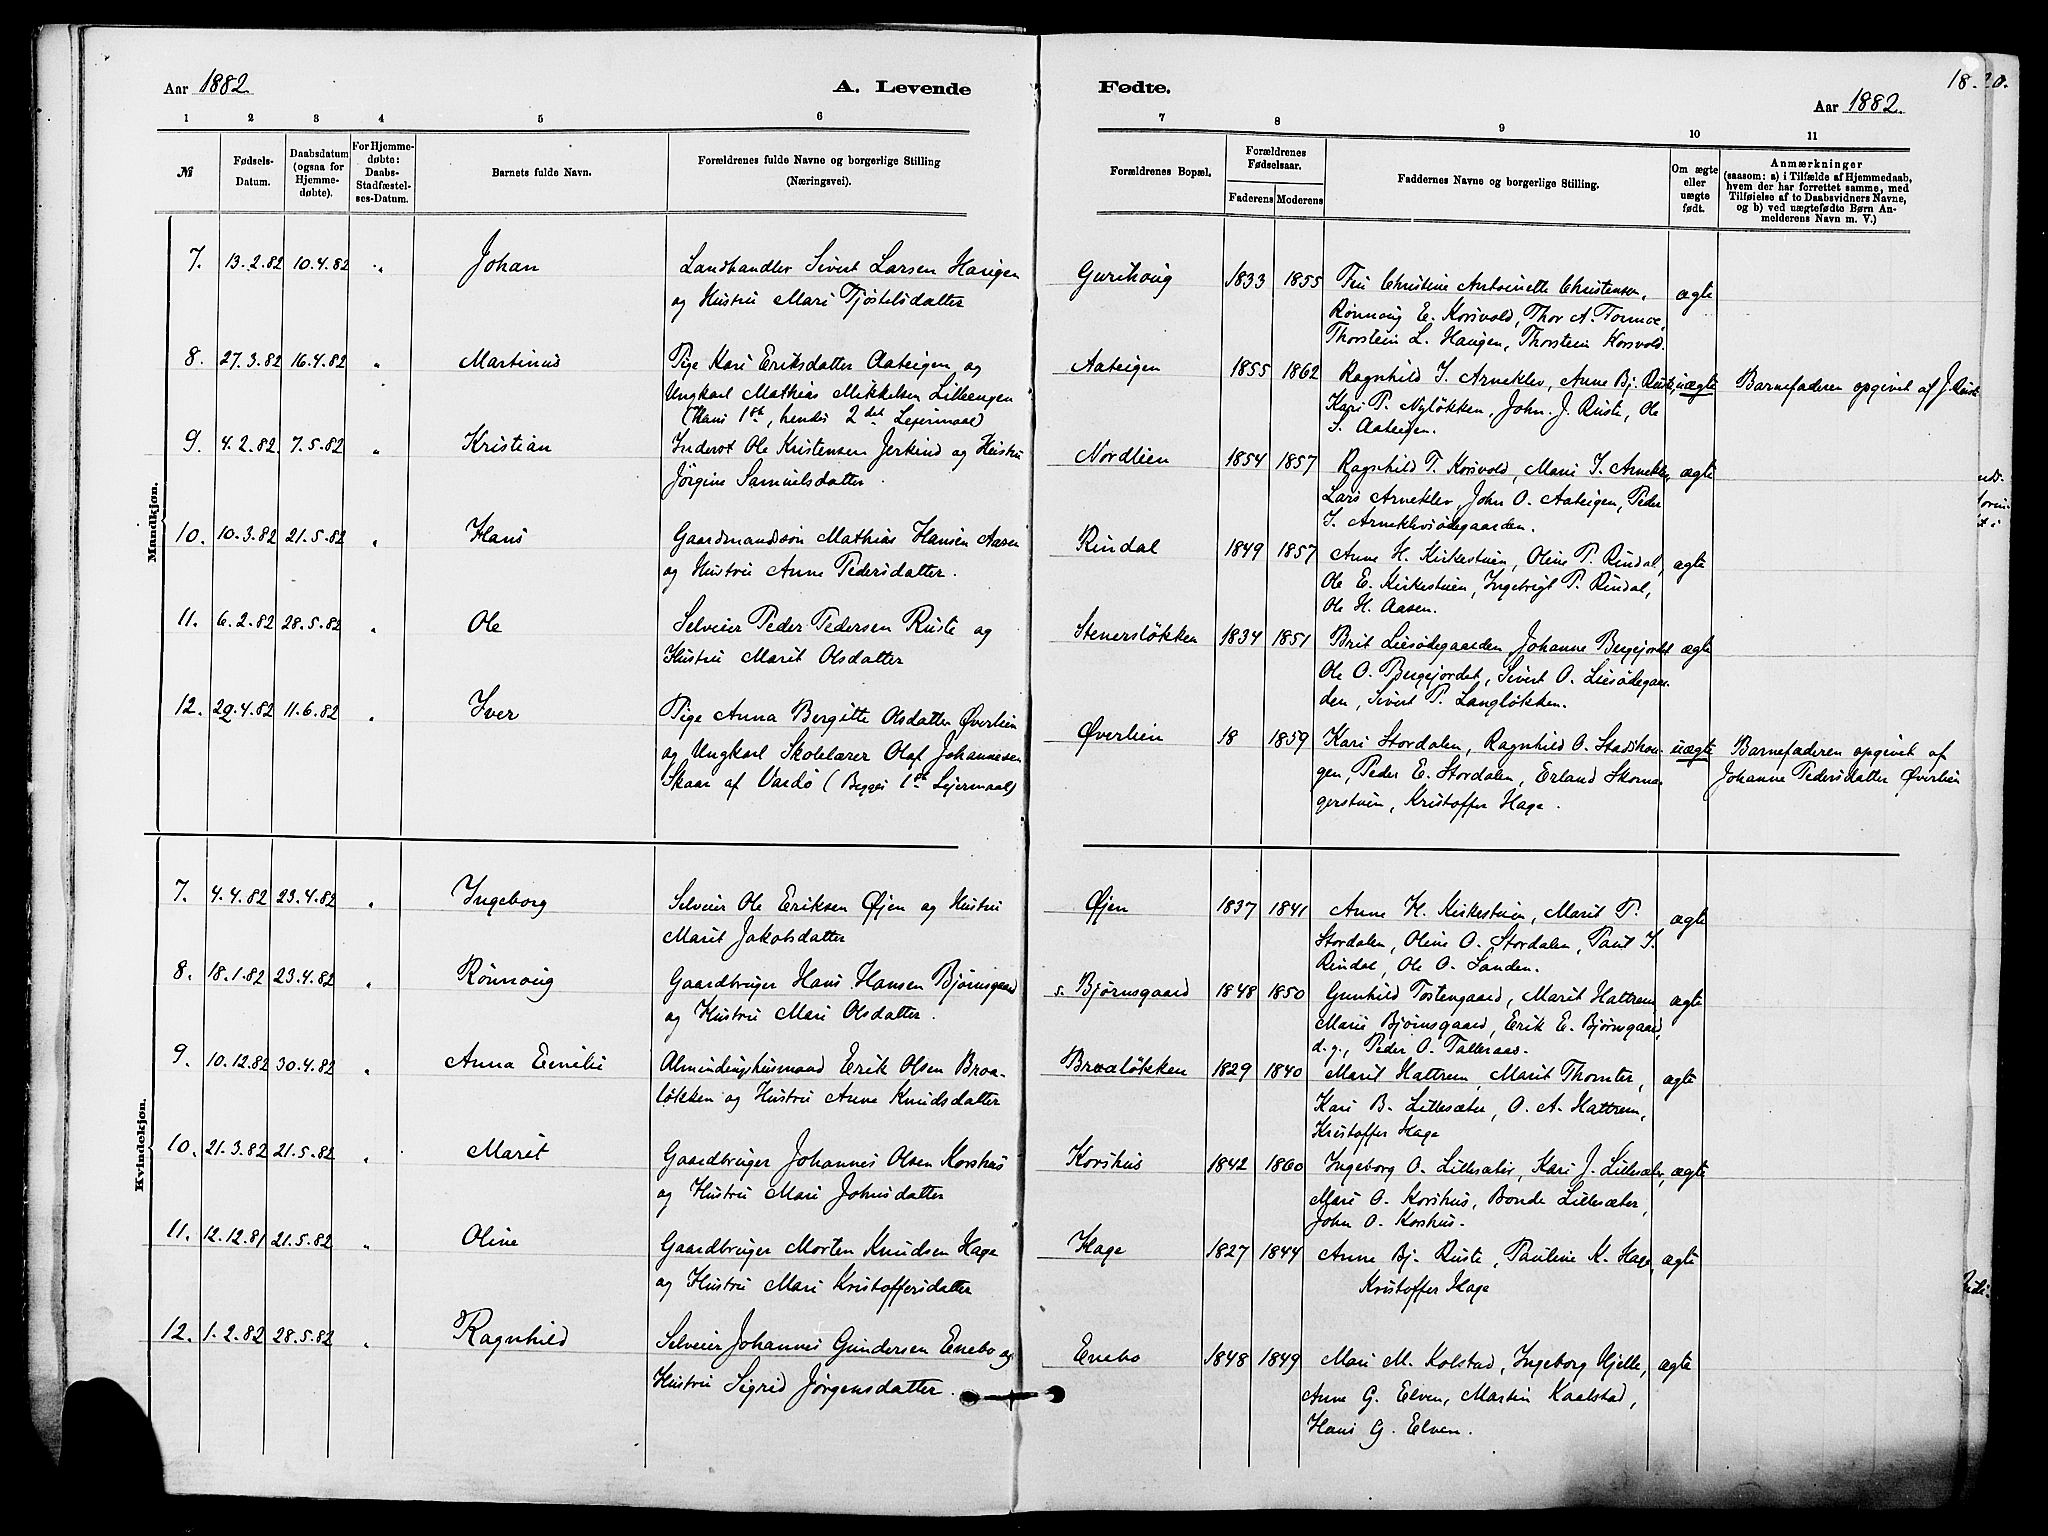 Aar 1882
A. Levende
1 2 3 4 5 6
№ Fødsels-Datum. Daabsdatum (ogsaa for Hjemmedøbte). For Hjemmedøbte: Daabs-Stadfæstelses-Datum. Barnets fulde Navn. Forældrenes fulde Navne og borgerlige Stilling (Næringsvei).
Mandkjøn.
7. 13.2.82 10.4.82 " Johan Landhandler Sivert Larsen Haugen
og Hustru Mari Tjøstelsdatter
8. 27.3.82 16.4.82 " Martinus Pige Kari Eriksdatter Aateigen og
Ungkarl Mathias Mikkelsen Lilleengen
(Hans 1st, hendes 2det Leiermaal)
9. 4.2.82 7.5.82 " Kristian Inderst Ole Kristensen Jerkind og Hustru
Jörgine Samuelsdatter
10. 10.3.82 21.5.82 " Hans Gaardmandssön Mathias Hansen Aasen
og Hustru Anne Pedersdatter.
11. 6.2.82 28.5.82 " Ole Selveier Peder Pedersen Ruste og
Hustru Marit Olsdatter
12. 29.4.82 11.6.82 " Iver Pige Anna Bergitte Olsdatter Øverlien
og Ungkarl Skolelærer Olaf Johannesen
Skaar af Vardö (Begges 1st Lejermaal)
Kvindekjøn.
7. 4.4.82 23.4.82 " Ingeborg Selveier Ole Eriksen Øjen og Hustru
Marit Jakobsdatter
8. 18.1.82 23.4.82 " Rönnoug Gaardbruger Hans Hansen Bjørnsgaard
og Hustru Mari Olsdatter.
9. 10.12.82 30.4.82 " Anna Emilie Almindingshusmand Erik Olsen Braa-
løkken og Hustru Anne Knudsdatter
10. 21.3.82 21.5.82 " Marit Gaardbruger Johannes Olsen Korshus
og Hustru Mari Johnsdatter
11. 12.12.81 21.5.82 " Oline Gaardbruger Morten Knudsen Hage
og Hustru Mari Kristoffersdatter
12. 1.2.82 28.5.82 " Ragnhild Selveier Johannes Gundersen Enebo og
Hustru Sigrid Jørgensdatter.
Fødte.
18. 20.
Aar 1882.
7 8 9 10 11
Forældrenes Bopæl. Forældrenes Fødselsaar. Faderens Moderens Faddernes Navne og borgerlige Stilling. Om ægte eller uægte født. Anmærkninger (saasom: a) i Tilfælde af Hjemmedaab, hvem der har forrettet samme, med Tilføielse af to Daabsvidners Navne, og b) ved uægtefødte Børn Anmelderens Navn m. V.)
Gurihoug 1833 1855 Fru Christine Antoinette Christensen, ægte
Rönnoug E. Korsvold, Thor A. Tormoe,
Thorstein L. Haugen, Thorstein Korsvold.
Aateigen 1855 1862 Ragnhild I. Arneklev, Anne Bj. Ruste, uægte Barnefaderen opgivet af J. Ruste
Kari P. Nyløkken, John. J. Ruste, Ole
S. Aateigen.
Nordlien 1854 1857 Ragnhild T. Korsvold, Mari I. Arneklev, ægte
Lars Arneklev, John O. Aateigen, Peder
I. Arneklevsödegaarden.
Rindal 1849 1857 Anne H. Kirkestuen, Oline P. Rindal, ægte
Ole E. Kirkestuen, Ingebrigt P. Rindal,
Ole H. Aasen.
Stenersløkken 1834 1851 Brit Liesödegaarden, Johanne Bergejordet ægte
Ole O. Bergejordet, Sivert O. Liesödegaar-
den, Sivert P. Langløkken.
Øverlien 18 1859 Kari Stordalen, Ragnhild O. Stadshou- uægte Barnefaderen opgivet af
gen, Peder E. Stordalen, Erland Skoma- Johanne Pedersdatter Øverlien
gerstuen, Kristoffer Hage.
Øjen 1837 1841 Anne H. Kirkestuen, Marit P. ægte
Stordalen, Oline O. Stordalen, Paul I.
Rindal, Ole O. Sanden.
s. Bjørnsgaard 1848 1850 Gunhild Tostengaard, Marit Hattrem, ægte
Marie Bjørnsgaard, Erik E. Bjørnsgaard,
d.y., Peder O. Talleraas.
Braaløkken 1829 1840 Marit Hattrem, Marit Thomter, ægte
Kari B. Lillesæter, O. A. Hattrem,
Kristoffer Hage
Korshus 1842 1860 Ingeborg O. Lillesæter, Kari J. Lillesæter, ægte
Mari O. Korshus, Bonde Lillesæter,
John O. Korshus.
Hage 1827 1844 Anne Bj. Ruste, Pauline K. Hage, ægte
Kristoffer Hage
Enebo 1848 1849 Mari M. Kolstad, Ingeborg Hjelle, ægte
Anne G. Elven, Martin Kaalstad,
Hans G. Elven.